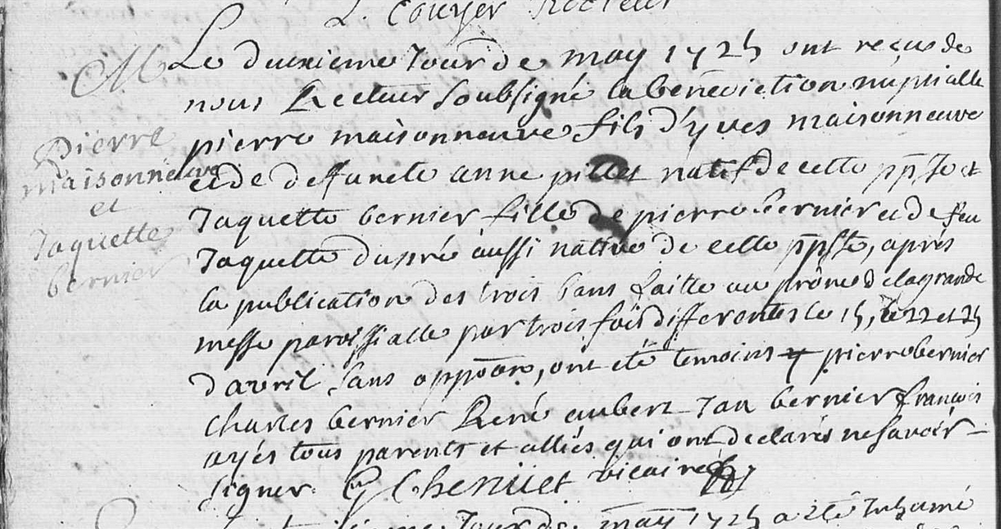 L. Couyer Recteur
M
Le deuxieme Jour de may 1725 ont reçus de
nous Recteur Soubsigné la benediction nuptialle
pierre maisonneuve fils d'yves maisonneuve
et de deffuncte anne pillet natif de cette ppsse et
Jaquette bernier fille de pierre bernier et de feu
Jaquette dupré aussi native de cette ppsse, apres
la publication des trois bans faitte au prône de la grande
messe paroissialle par trois fois differentes le 15, le 22 et 25
d'avril sans oppoon, ont été temoins pierre bernier
Charles bernier René aubert Jan bernier françois
ayés tous parents et alliés qui ont declarés ne savoir
signer G Chenüet vicaire
Pierre
maisonneuve
et
Jaquette
bernier
Jour de may 1725 a été Inhumé